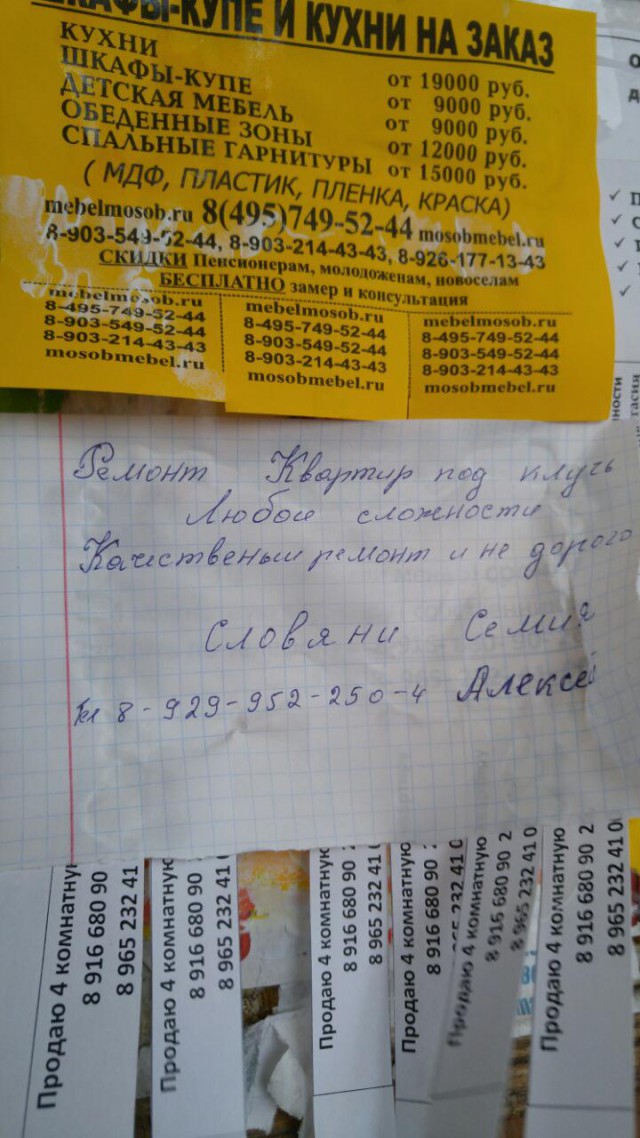 ШКАФЫ-КУПЕ И КУХНИ НА ЗАКАЗ
КУХНИ от 19000 руб.
ШКАФЫ-КУПЕ от 9000 руб.
ДЕТСКАЯ МЕБЕЛЬ от 9000 руб.
ОБЕДЕННЫЕ ЗОНЫ от 12000 руб.
СПАЛЬНЫЕ ГАРНИТУРЫ от 15000 руб.
( МДФ, ПЛАСТИК, ПЛЕНКА, КРАСКА)
mebelmosob.ru 8(495)749-52-44 mosobmebel.ru
8-903-549-52-44, 8-903-214-43-43, 8-926-177-13-43
СКИДКИ Пенсионерам, молодоженам, новоселам
БЕСПЛАТНО замер и консультация
mebelmosob.ru
8-495-749-52-44
8-903-549-52-44
8-903-214-43-43
mosobmebel.ru
mebelmosob.ru
8-495-749-52-44
8-903-549-52-44
8-903-214-43-43
mosobmebel.ru
mebelmosob.ru
8-495-749-52-44
8-903-549-52-44
8-903-214-43-43
mosobmebel.ru
Ремонт Квартир под клучь
Любои сложности
Качественыи ремонт и не дорого
Словяни Семия
Тел 8-929-952-250-4 Алексей
Продаю 4 комнатную
8 916 680 90
8 965 232 41
Продаю 4 комнатную
8 916 680 90
8 965 232 41 0
Продаю 4 комнатную
8 916 680 90 2
8 965 232 41 0
Продаю 4 комнатную
8 916 680 90 2
8 965 232 41 0
Продаю 4 комнатную
8 916 680 90 2
8 965 232 41 0
Продаю 4 комнатную
8 916 680 90 2
8 965 232 41 0